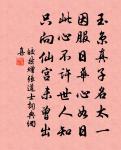 玉京真子名太一
因服日華心如日
此心不許世人知
只向仙宮未曾出
皎然贈張道士